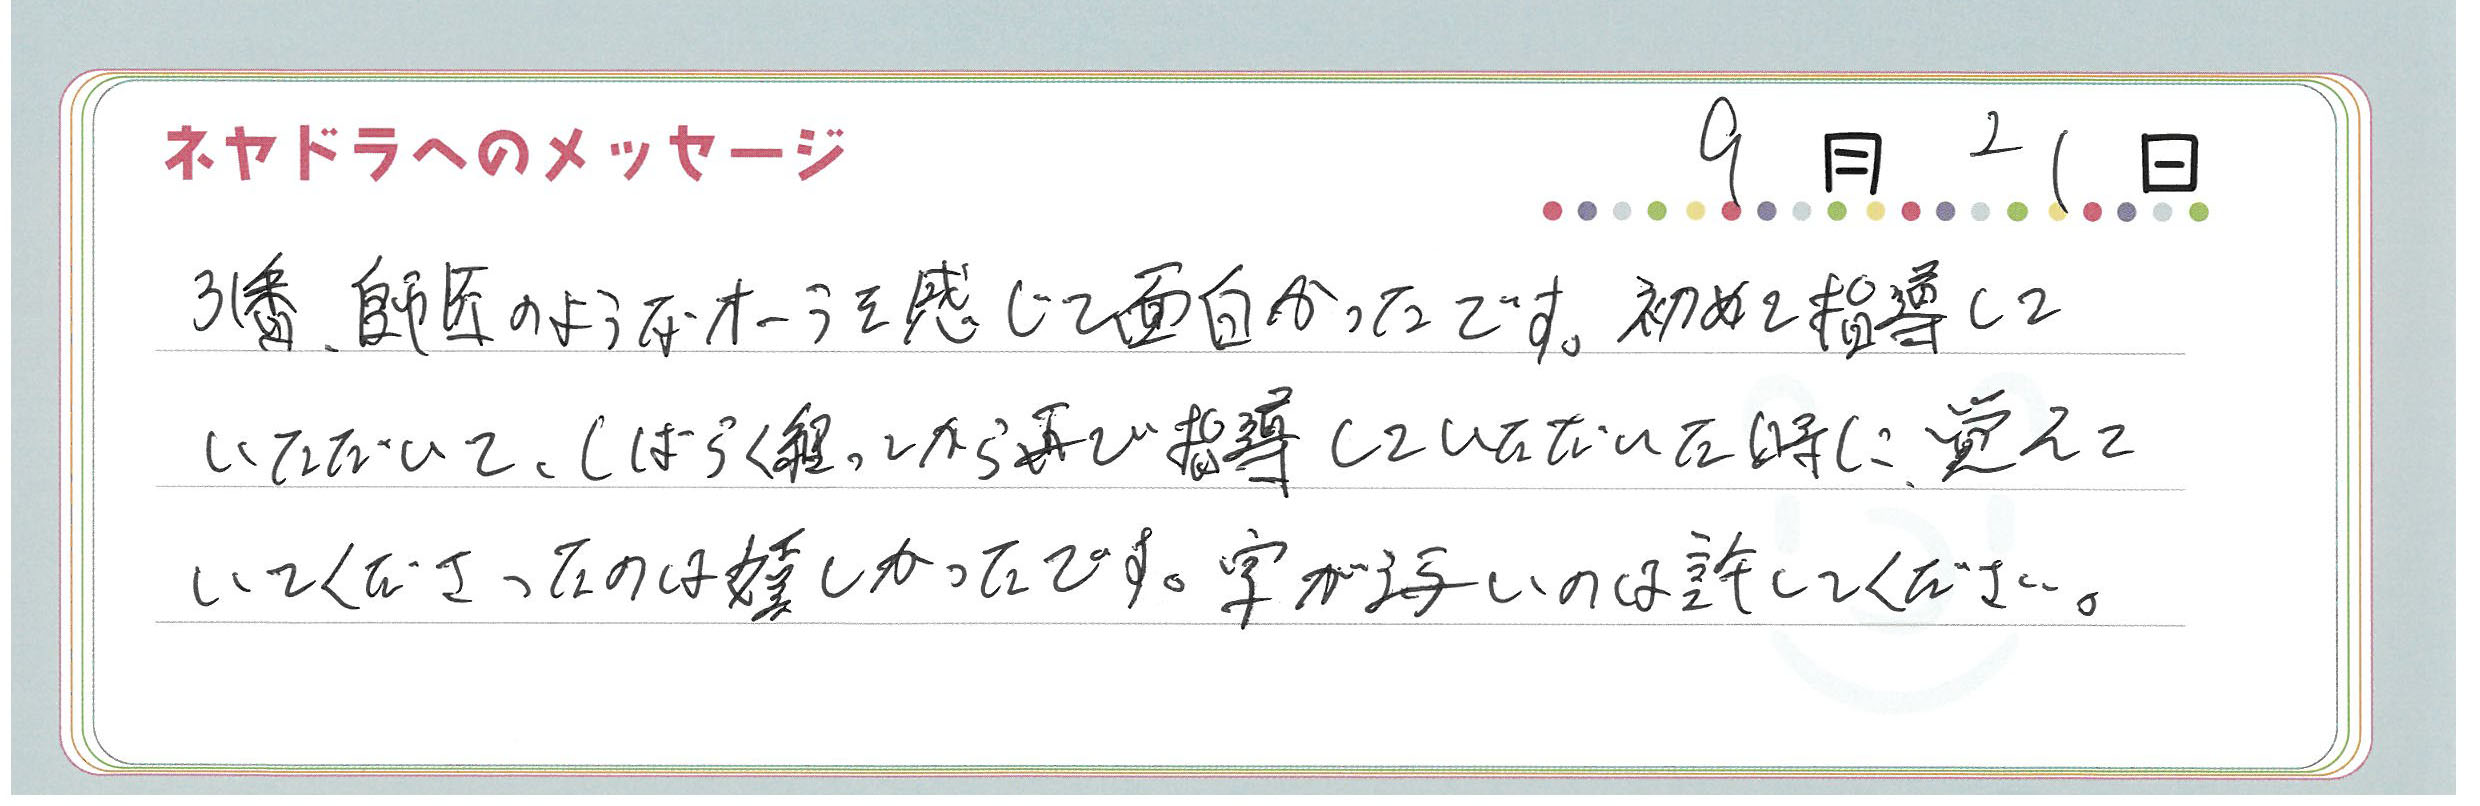 ネヤドラへのメッセージ
9月21日
31番、師匠のようなオーラを感じて面白かったです。初めて指導して
いただいて、しばらく経ってから再び指導していただいた時に、覚えて
いてくださったのは嬉しかったです。字が汚いのは許してください。